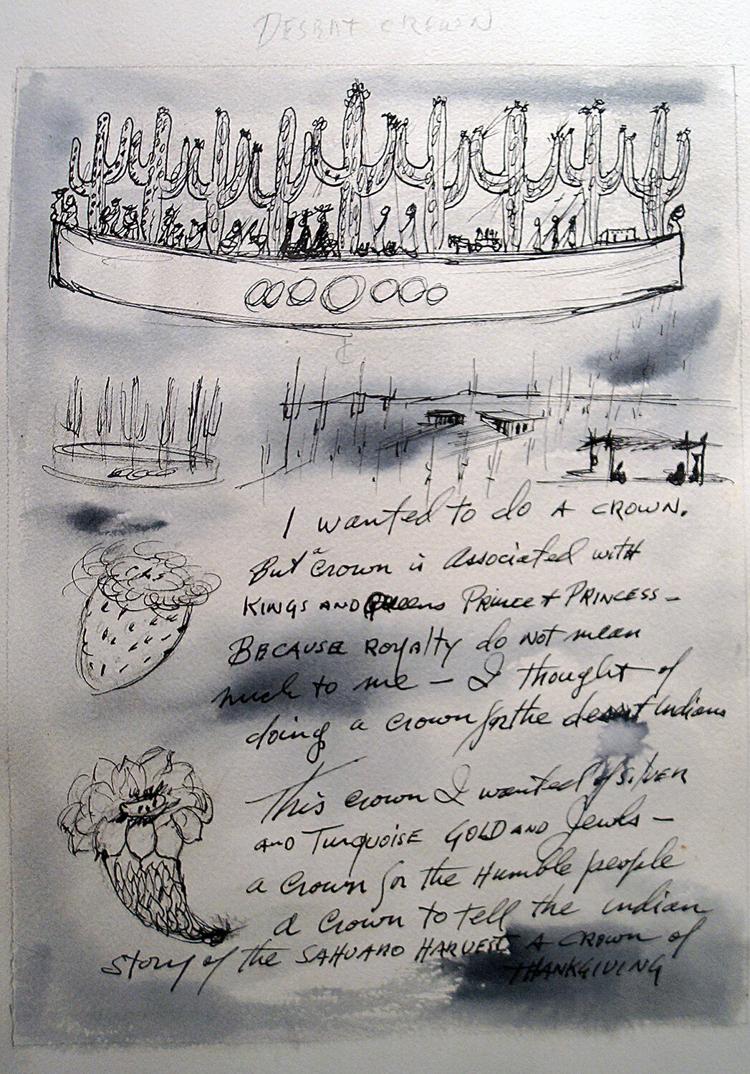 DESERT CROWN
I wanted to do A CROWN.
But a crown is Associated with
KINGS AND Queens PRINCE + PRINCESS –
BECAUSE ROYAlty do NOT mean
much to me – I thought of
doing a crown for the desert Indians
This crown I wanted of silver
AND TURQUOISE GOLD AND Jewls –
a crown for the Humble people
a crown to tell the indian
story of the SAHUARO HARVEST A CROWN of
THANKGIVING